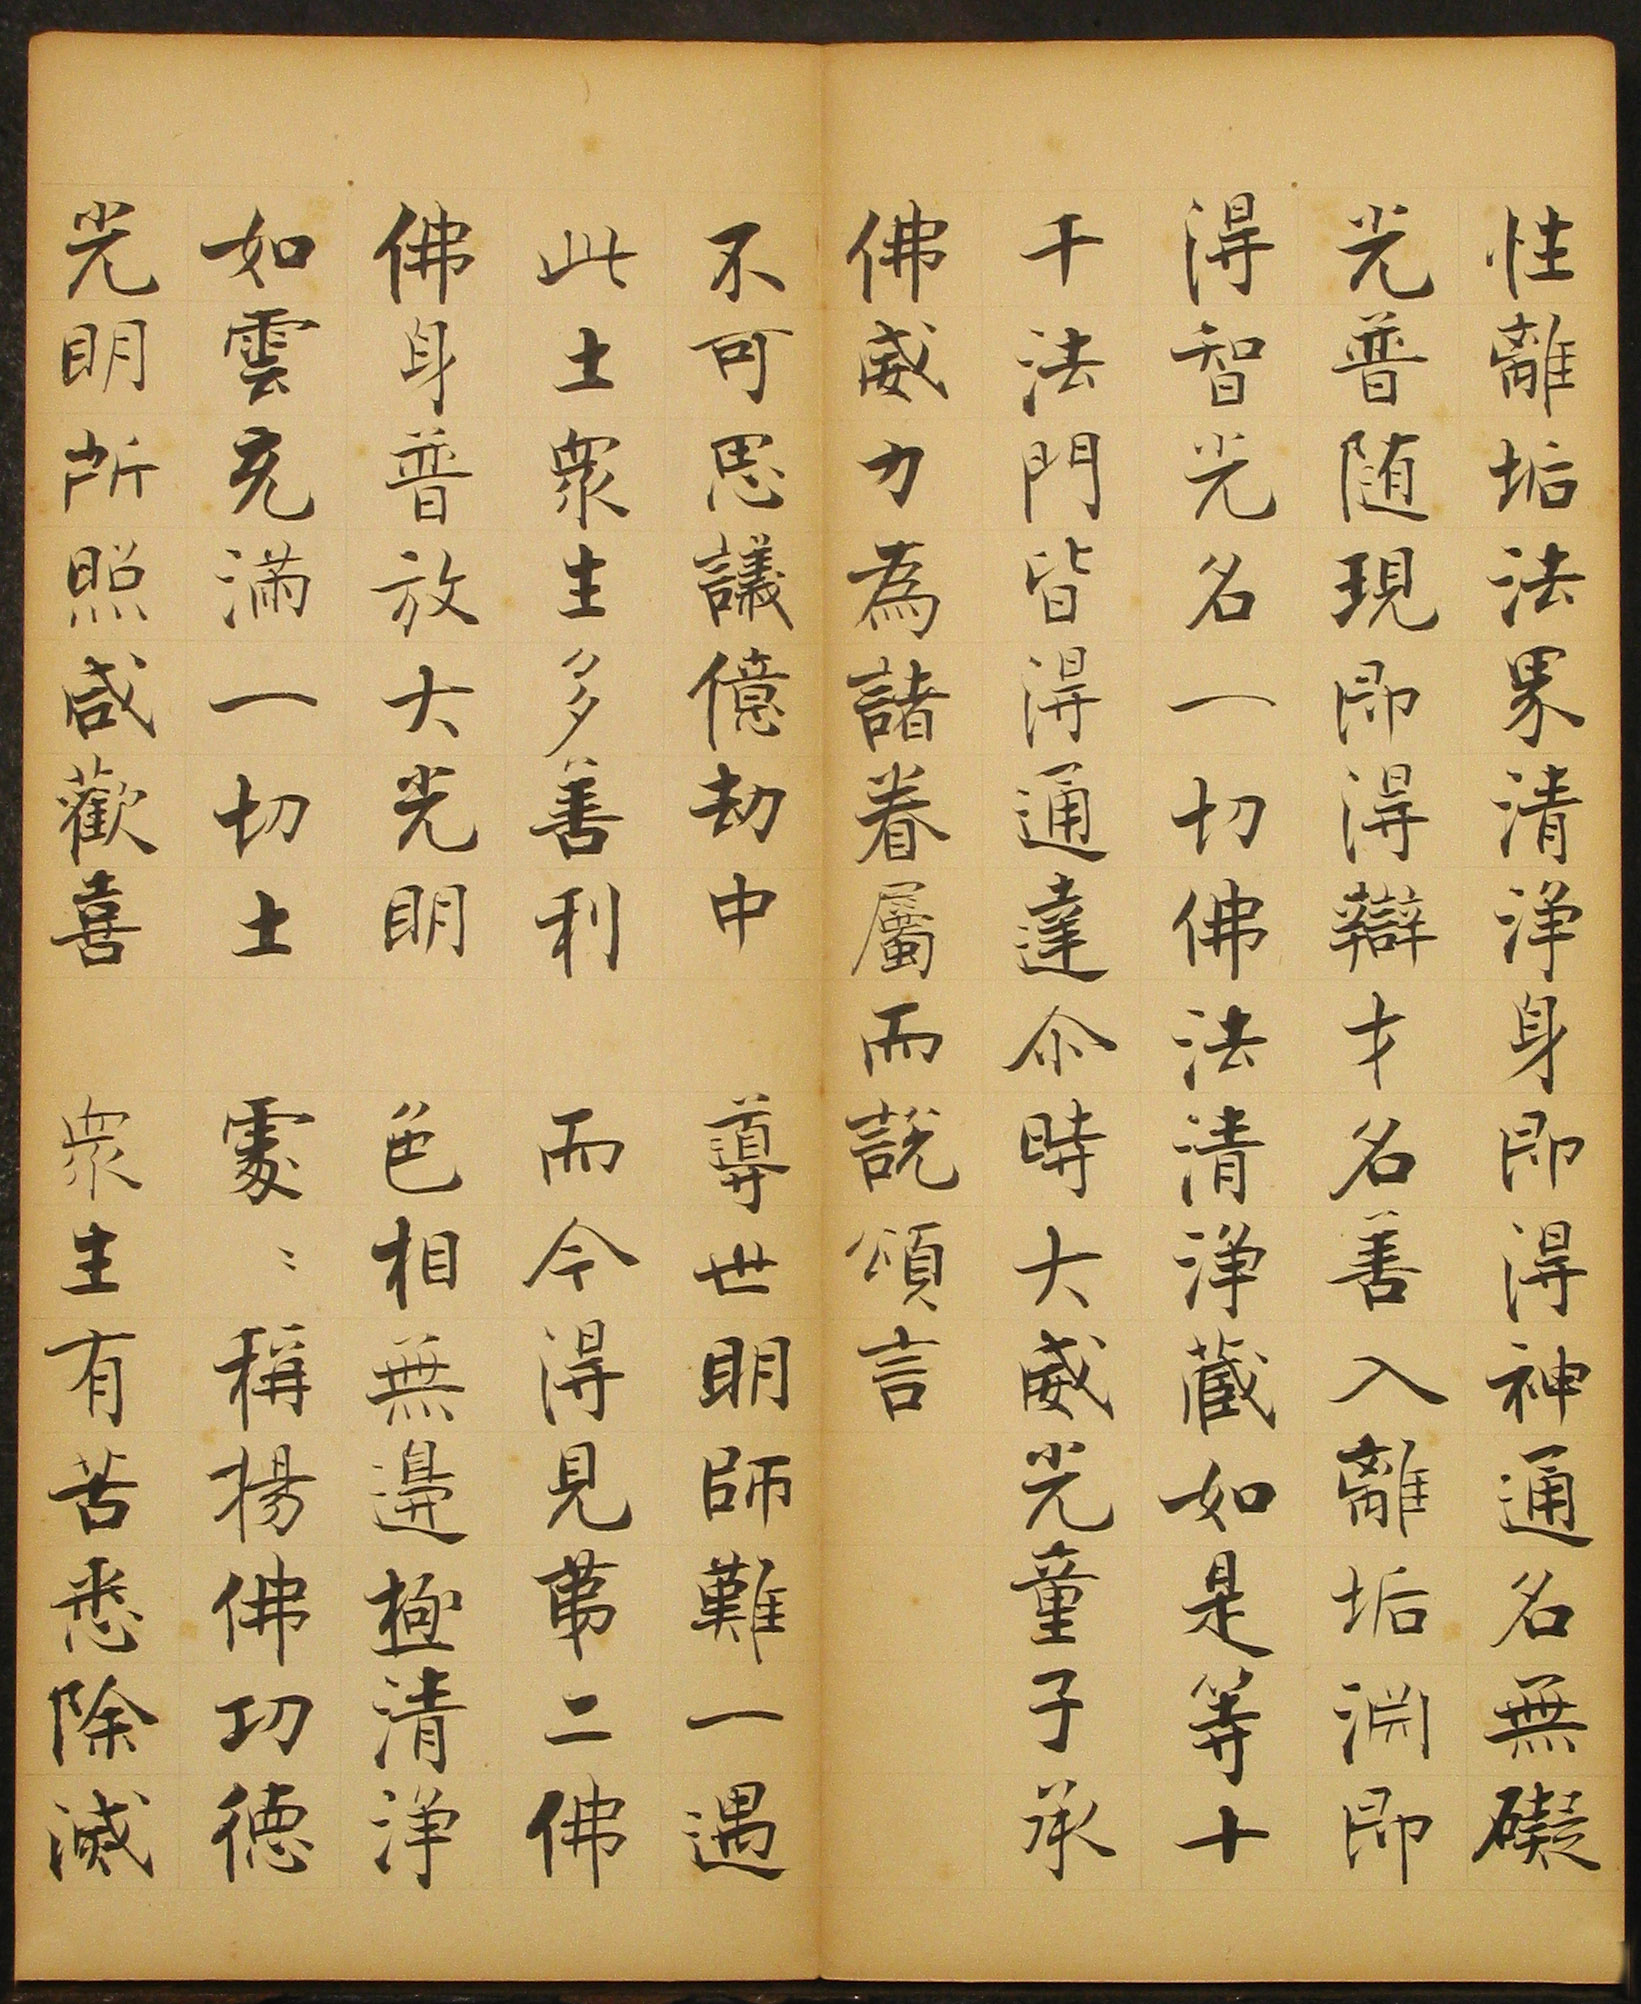 性離垢法界清淨身即得神通名無礙
光普随現即得辯才名善入離垢淵即
得智光名一切佛法清淨藏如是等十
千法門皆得通達尒時大威光童子承
佛威力為諸眷屬而說頌言
不可思議億劫中　導世明師難一遇
此土衆生多善利　而今得見第二佛
佛身普放大光明　色相無邊極清淨
如雲充滿一切土　處〻稱揚佛功德
光明所照咸歡喜　衆生有苦悉除滅